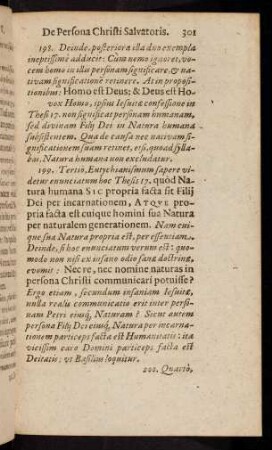 De Persona Christi Salvatoris. 301
198. Deinde, posteriora illa duo exempla
ineptissimè adducit: Cùm nemo ignoret, vo-
cem homo in illis personam significare, & na-
tivam significationē retinere. At in proposi-
tionibus; Homo est Deus; & Deus est Ho-
vox Homo, ipsius Iesuitæ confessione in
Thesi 17. non significat personam humanam,
sed divinam Filij Dei in Natura humana
subsistentem. Quâ de causâ nec nativam si-
gnificationem suam retinet, etsi, quoad sylla-
bas, Natura humana non excludatur.
199. Tertiò, Eutychianismum sapere vi-
detur enunciatum hoc Thesis 17. quòd Natu-
ra humana SIC propria facta sit Filij
Dei per incarnationem, ATQVE pro-
pria est cuique homini sua Natura
per naturalem generationem. Nam cui-
que sua Natura propria est, per essentiam.
Deinde, si hoc enunciatum verum est: quo-
modo non nisi ex insano odio sanæ doctrinæ,
evomit: Nec re, nec nomine naturas in
persona Christi communicari potuisse?
Ergo etiam, secundum insaniam Iesuitæ,
nulla realis communicatio erit inter perso-
nam Petri eiusq́, Naturam? Sicut autem
persona Filij Dei eiusq́, Natura per incarna-
tionem particeps facta est Humanitatis: ita
vicissim caro Domini particeps facta est
Deitatis; vt Basilius loquitur.
200. Quartò,